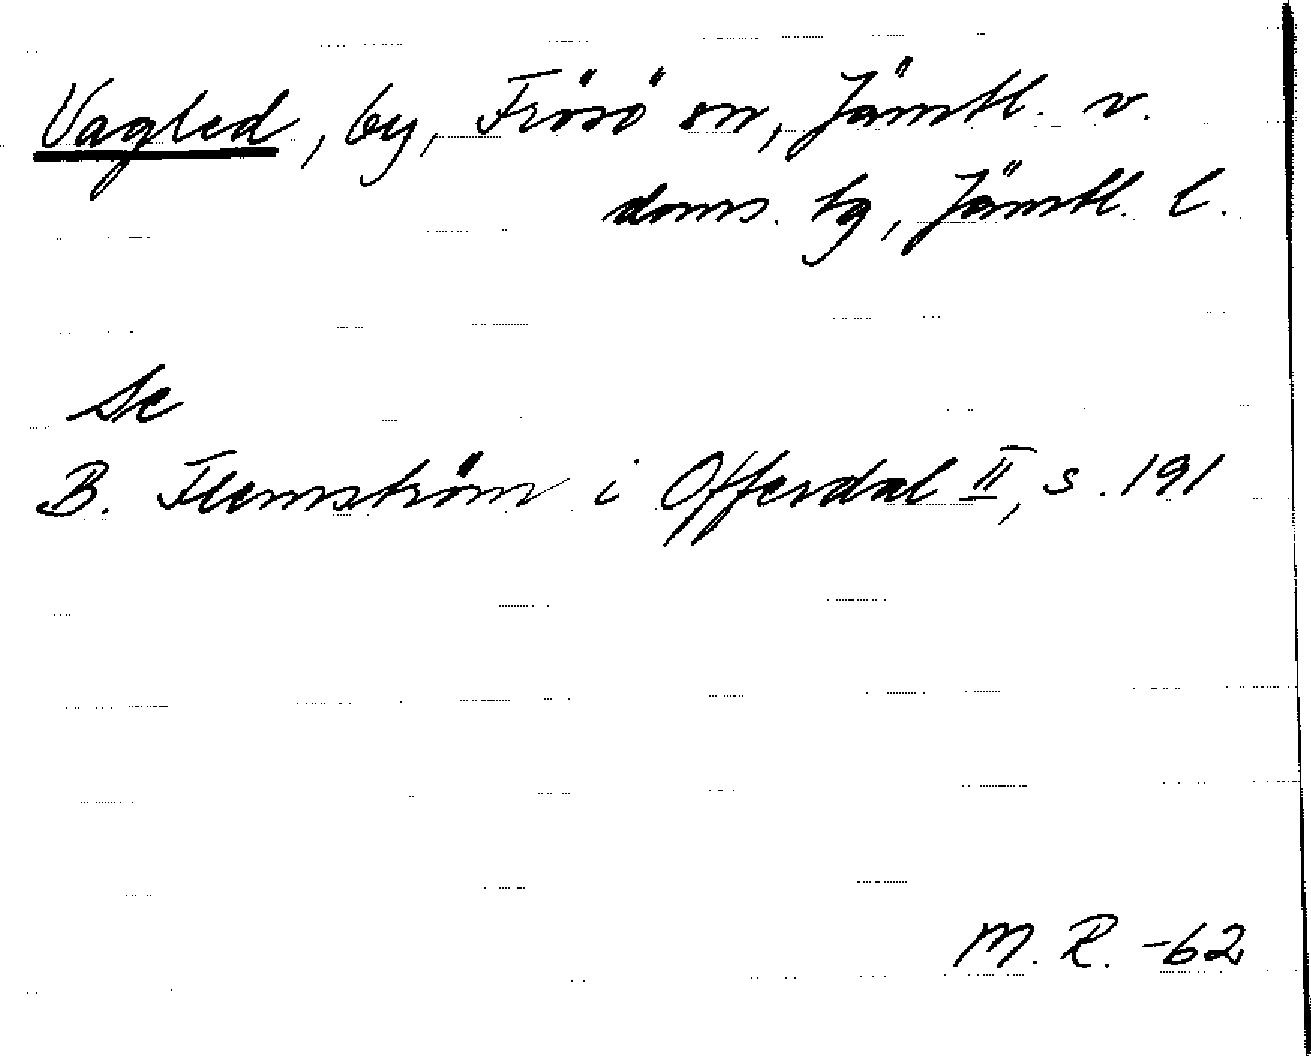 Vagled, by, Frösö sn, Jämtl. v.
doms. hg, Jämtl. l.
Se
B. Flemström i Offerdal II, s. 191
M. R. -62